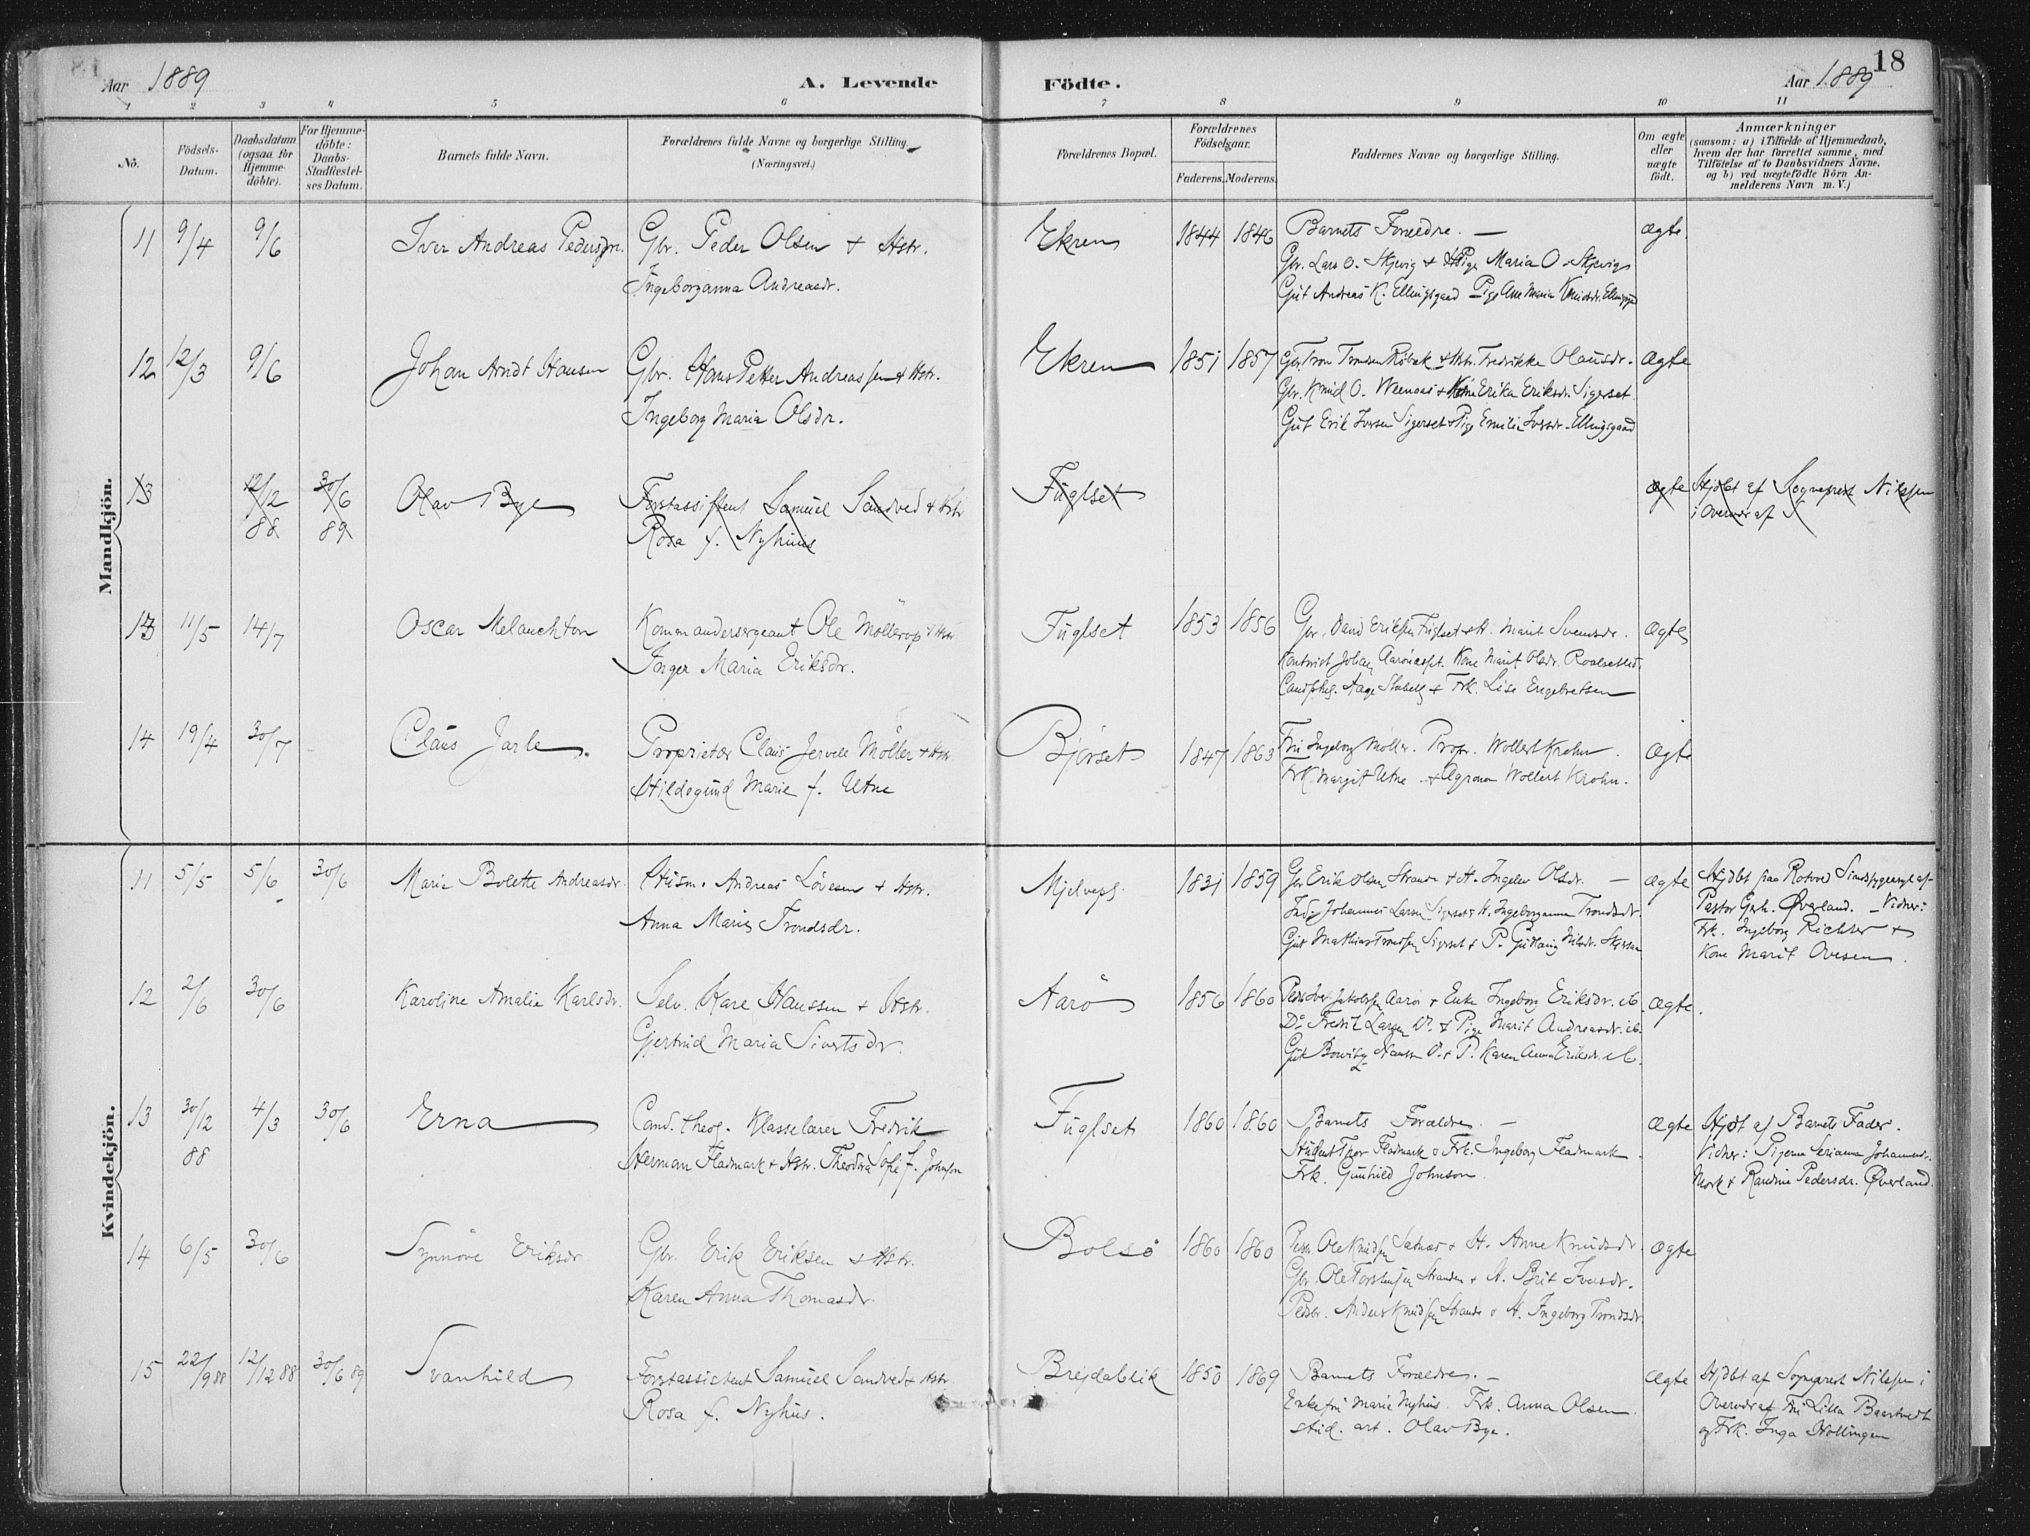 18
Aar 1889 A. Levende Födte. Aar 1889
1 2 3 4 5 6 7 8 9 10 11
Nô. Födsels-Datum. Daabsdatum (ogsaa for Hjemme-döbte). For Hjemme-döbte: Daabs-Stadfæstel-ses Datum. Barnets fulde Navn. Forældrenes fulde Navne og borgerlige Stilling (Næringsvei.) Forældrenes Bopæl. Forældrenes Födselsaar. Faderens. Moderens. Faddernes Navne og borgerlige Stilling. Om ægte eller uægte födt. Anmærkninger (saasom: a) i Tilfælde af Hjemmedaab, hvem der har forrettet samme, med Tilföielse af to Daabsvidners Navne, og b) ved uægtefödte Börn An-melderens Navn m. V.)
Mandkjön.
11 9/4 9/6 Iver Andreas Pedersen. Gbr. Peder Olsen + Hstr. Ekrem 1844 1846 Barnets Forældre. — ægte.
Ingeborganna Andreasdr. Gbr. Lars O. Skjevig + Pige Maria O. Skjevig
Gut Andreas K. Ellingsgaard Pige Ane Maria Knudsdr. Ellingsgd
12 12/3 9/6 Johan Arndt Hansen Gbr. Hans Petter Andreassen + Hstr. Ekrem 1851 1857 Fredrikke Olausdr. ægte
Ingeborg Maria Olsdr. Gbr. Knud O. + Kone Erika Eriksdr. Sigerset
Gut Erik Iversen Sigerset + Pige Emilie Iversdr. Ellingsgaard
13 12/12 88 30/6 89 Olav Bye Forstassistent Samuel Sandved + Hstr Fuglset ægte Hjdbt af Sogneprest Nilssen
Rosa f. Nyhuus i Overvær af
13 11/5 14/7 Oscar Melanchton Kommandersergeant Ole Möllerop + Hstr Fuglset 1853 1856 Gbr. David Eriksen Fuglset + H. Marit Svensdr. ægte
Inger Maria Eriksdr. Kone Marit Olsdr.
Aage + Frk. Lise Engebretsen
14 19/4 30/7 Claus Jarle. Proprietær Claus Jervell Möller + Hstr Bjørset 1847 1863 Fru Ingeborg Möller. Propr. Wollert Krohn. ægte
Hildegund Marie f. Utne Frk Margit Utne + Agronom Wollert Krohn.
Kvindekjön.
11 5/5 5/6 30/6 Marie Bolette Andreasdr. Husm. Andreas + Hstr. 1831 1859 Gbr Erik Olsen Strande + H. Ingeborg Olsdr. — ægte Hjdbt paa af
Anna Marie Trondsdr. Johannes Larsen Sigerset + H. Ingeborganna Trondsdr. Pastor Gerh. Øverland. — Vidner:
Gut Mathias Trondsen Sigerset + P. Frk. Ingeborg Richter +
Kone Marit Ovesen.
12 2/6 30/6 Karoline Amalie Karlsdr. Selv. Karl Hanssen + Hstr. Aarö 1856 1860 Iver Jakobsen Aarö + Enke Ingeborg Eriksdr. ib. ægte.
Gjertrud Maria Sivertsdr. Do Fredrik Larsen Do + Pige Marit Andreasdr. ib.
Gut Hansen Do + P. Karen Anna Eriksdr. ib.
13 30/12 88 4/3 30/6 Erna Cand. theol. Klasselærer Fredrik Fuglset 1860 1860 Barnets Forældre. — ægte Hjdbt af Barnets Fader.
Herman Fladmark + Hstr. Theodora Sofie f. Johnson Student Thor Fladmark o Frk. Ingeborg Fladmark. Vidner: Pigerne Serianna Johannesdr.
Frk. Gunhild Johnson. Mork + Randine Pedersdr. Øverland.
14 6/5 30/6 Synnöve Eriksdr Gbr. Erik Eriksen + Hstr. Bolsö 1860 1860 Ole Knudsen + H. Anne Knudsdr. ægte
Karen Anna Thomasdr. Gbr. Ole Stranden + H. Brit Iversdr.
Anders Knudsen Strande o H. Ingeborg Trondsdr
15 22/9 88 12/12 88 30/6 89 Svanhild Forstassistent Samuel Sandved + Hstr. Brejdablik 1850 1869 Barnets Forældre. — ægte Hjdbt af Sogneprest Nilssen i
Rosa f. Nyhus. Enkefru Marie Nyhus. Frk. Anna Olsen Overvær af Fru Lilla
stud. art. Olav Bye. og Frk. Inga